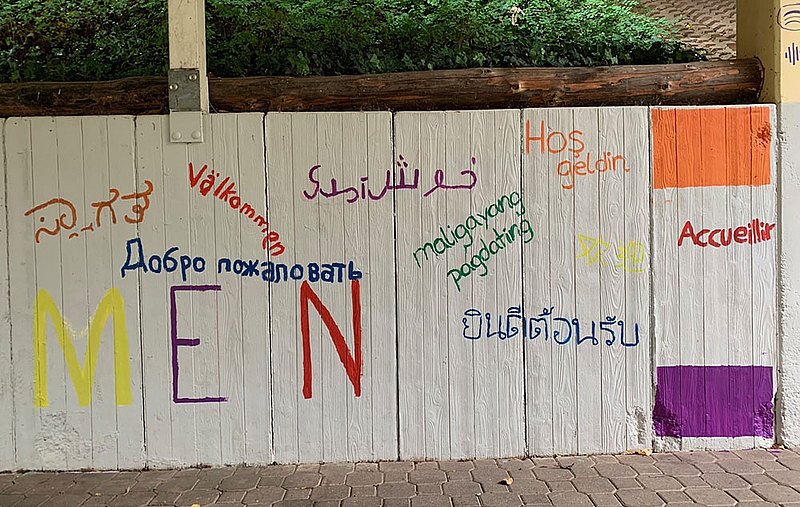 ಸ್ವಾಗತ
Välkommen
خوش آمدید
Hoş
geldin
Добро пожаловать
maligayang
pagdating
欢迎
Accueillir
MEN
ยินดีต้อนรับ